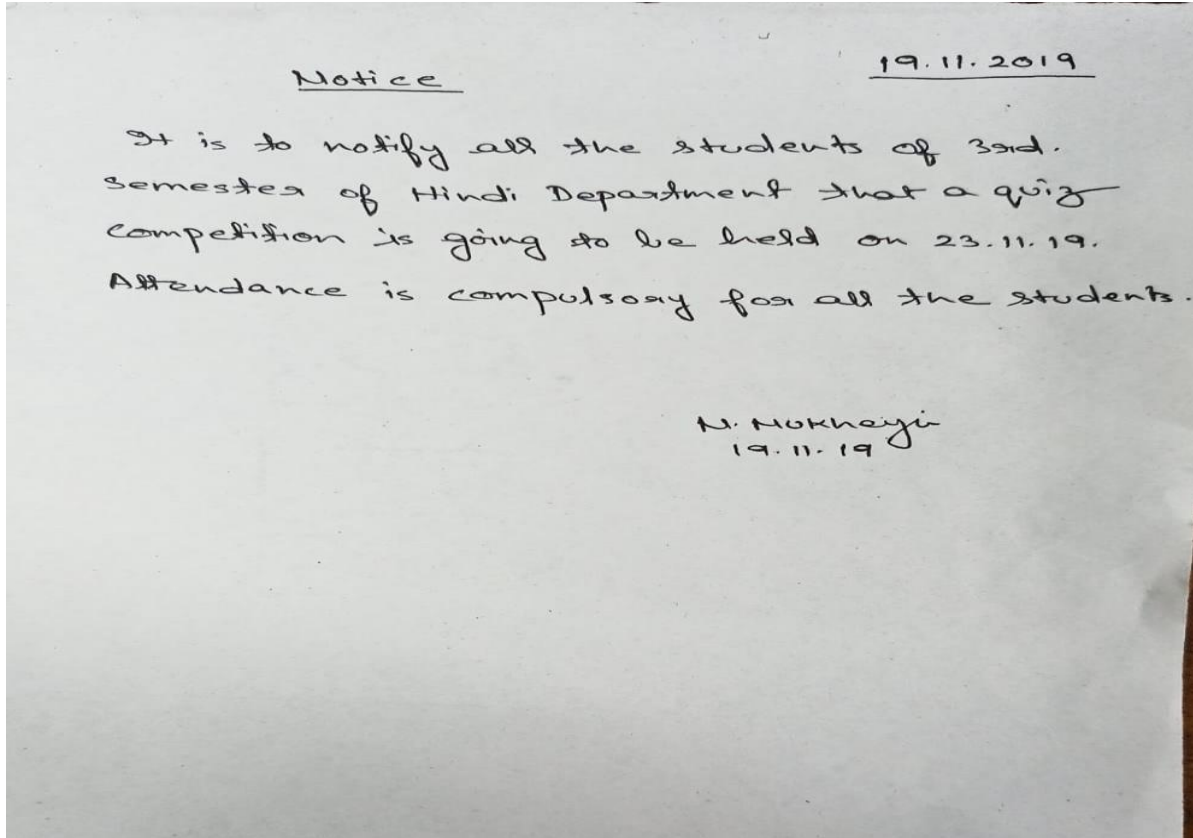 Notice
19.11.2019
It is to notify all the students of 3rd.
semester of Hindi Department that a quiz
competition is going to be held on 23.11.19.
Attendance is compulsory for all the students.
N. Mukherji
19.11.19